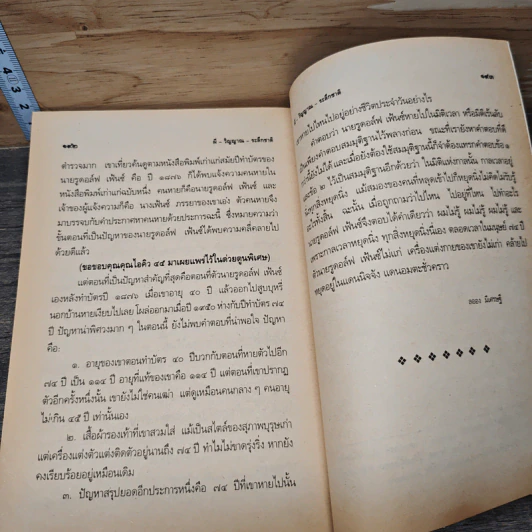 ๑๙๒
ผี - วิญญาณ - ระลึกชาติ
ตำรวจมาก เขาเที่ยวค้นดูตามหนังสือพิมพ์เก่าแก่สมัยปีทำบัตรของ
นายรูดอล์ฟ เฟ้นซ์ คือ ปี ๑๘๗๖ ก็ได้พบแจ้งความคนหายใน
หนังสือพิมพ์เก่าแก่ฉบับหนึ่ง คนหายก็คือนายรูดอล์ฟ เฟ้นซ์ และ
เจ้าของผู้แจ้งความก็คือ นางเฟ้นซ์ ภรรยาของเขาเอง ตัวคนหายจึง
มาบรรจบกับคำประกาศหาคนหายด้วยประการฉะนี้ ซึ่งหมายความว่า
ขั้นตอนที่เป็นปัญหาของนายรูดอล์ฟ เฟ้นซ์ได้พบความคลี่คลายไป
ด้วยดีแล้ว
(ขอขอบคุณคุณไอคิว ๔๔ มาเผยแพร่ไว้ในต่วยตูนพิเศษ)
แต่ตอนที่เป็นปัญหาสำคัญที่สุดคือตอนที่ตัวนายรูดอล์ฟ เฟ้นซ์
เองหลังทำบัตรปี ๑๘๗๖ เมื่อเขาอายุ ๔๐ ปี แล้วออกไปสูบบุหรี่
นอกบ้านหายเงียบไปเลย โผล่ออกมาเมื่อปี ๑๙๕๐ ห่างกับปีทำบัตร ๗๔
ปี ปัญหาน่าพิศวงมาก ๆ ในตอนนี้ ยังไม่พบคำตอบที่น่าพอใจ ปัญหา
คือ:
๑. อายุของเขาตอนทำบัตร ๔๐ ปีบวกกับตอนที่หายตัวไปอีก
๗๔ ปี เป็น ๑๑๔ ปี อายุที่แท้ของเขาคือ ๑๑๔ ปี แต่ตอนที่เขาปรากฏ
ตัวอีกครั้งหนึ่งนั้น เขายังไม่ใช่คนเฒ่า แต่ดูเหมือนคนกลาง ๆ คนอายุ
ไม่เกิน ๔๕ ปี เท่านั้นเอง
๒. เสื้อผ้ารองเท้าที่เขาสวมใส่ แม้เป็นสไตล์ของสุภาพบุรุษเก่า
แต่เครื่องแต่งตัวแต่งติดตัวอยู่นานถึง ๗๔ ปี ทำไมไม่ขาดรุ่งริ่ง หากยัง
คงเรียบร้อยอยู่เหมือนเดิม
๓. ปัญหาสรุปยอดอีกประการหนึ่งคือ ๗๔ ปีที่เขาหายไปนั้น
วิญญาณ - ระลึกชาติ
๑๙๓
เขาหายไปไหนไปอยู่อย่างชีวิตประจำวันอย่างไร
คำตอบว่า นายรูดอล์ฟ เฟ้นซ์หายไปในมิติเวลา หรือมิติเร้นลับ
เป็นเพียงคำตอบสมมุติฐานไว้พลางก่อน ขณะที่เรายังหาคำตอบที่ดี
กว่านี้ยังไม่ได้ และเมื่อยังต้องใช้สมมุติฐานนี้ก็จำต้องแทรกคำตอบข้อ ๒
และข้อ ๓ ไว้เป็นสมมุติฐานอีกด้วยว่า ในมิติแห่งกาลนั้น กาลเวลาอยู่
ทุกสิ่งหยุดนิ่ง แม้สมองของคนที่หลุดเข้าไปก็หยุดนิ่งไม่คิดไม่รับรู้
ทั้งสิ้น ฉะนั้น เมื่อถูกถามว่าไปไหน ไปอยู่ที่ไหน ไปทำอะไร
รูดอล์ฟ เฟ้นซ์จึงตอบได้คำเดียวว่า ผมไม่รู้ ผมไม่รู้ ผมไม่รู้ และ
เพราะกาลเวลาหยุดนิ่ง ทุกสิ่งหยุดนิ่งนี้เอง ตลอดเวลาในมนุษย์ ๗๔ ปี
ตัวนายรูดอล์ฟ เฟ้นซ์ไม่แก่ เครื่องแต่งกายของเขายังไม่เก่า คล้ายไป
หยุดอยู่ในแดนนิจจัง แดนอมตะชั่วคราว